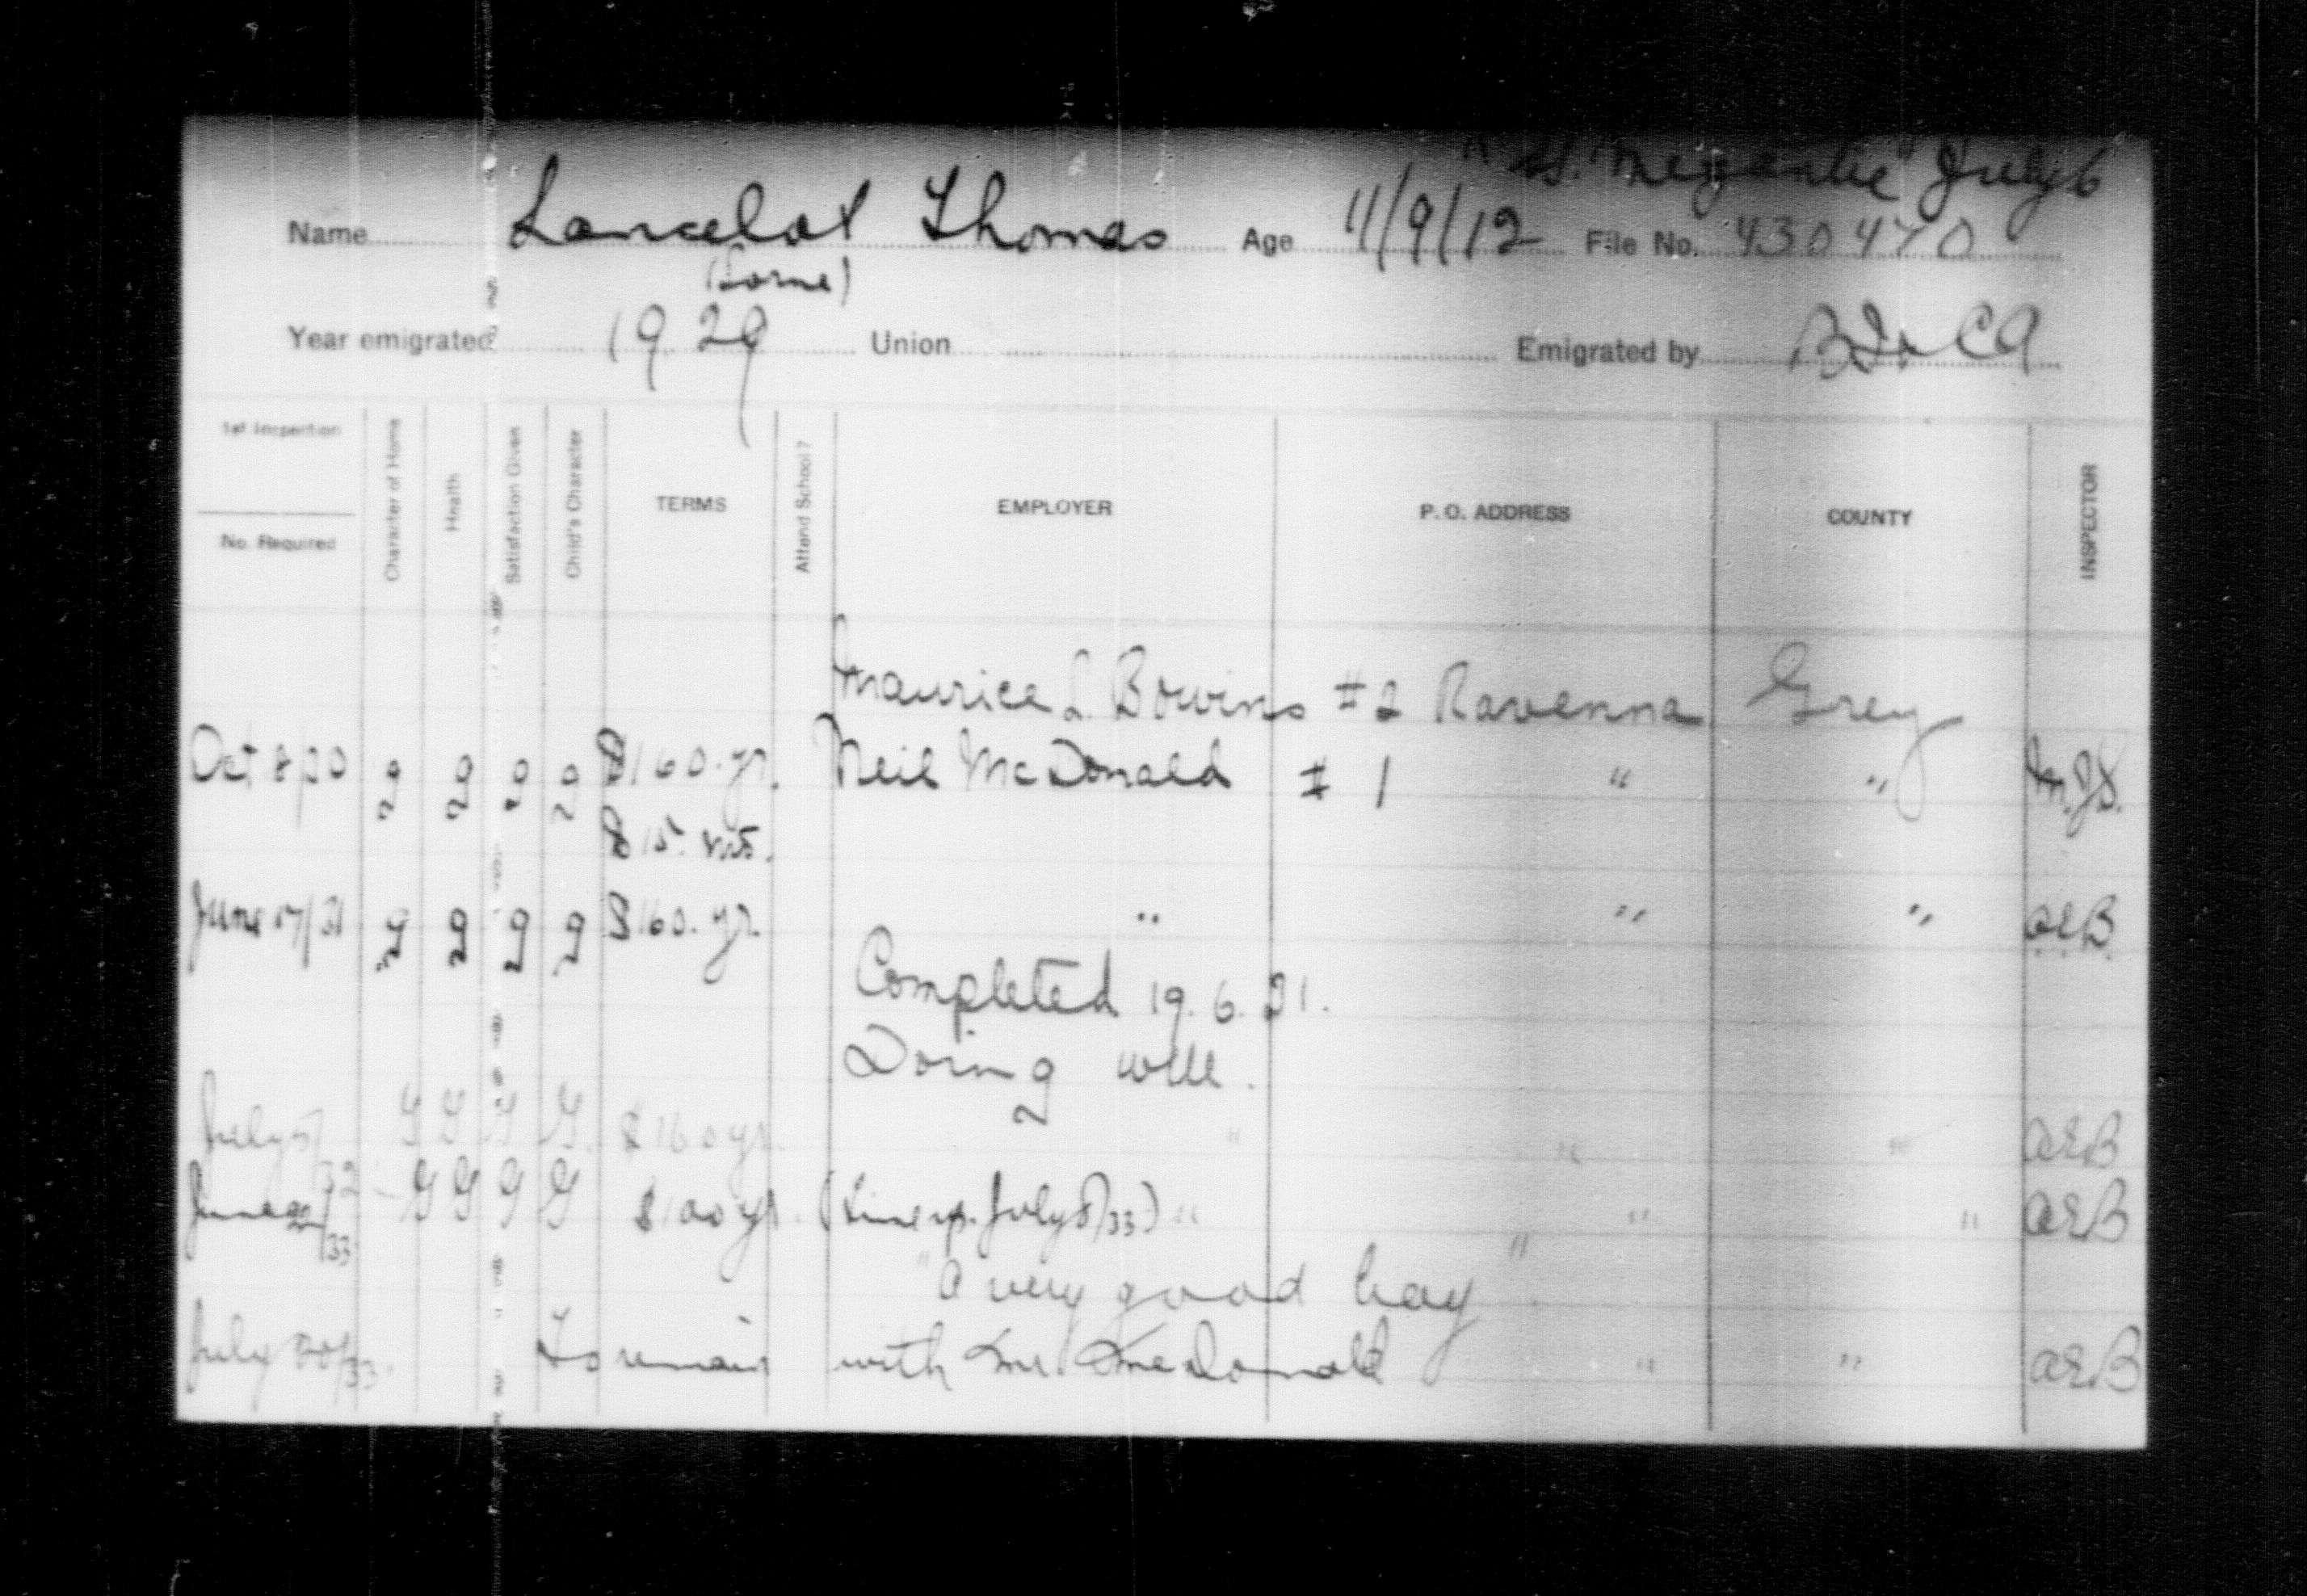 SS. Megantic July 6
Name Lancelot Thomas Age 11/9/12 File No. 430470
(Lorne)
Year emigrated 1929 Union Emigrated by
1st Inspection
No. Required
Character of Home
Health
Satisfaction Given
Child's Character
TERMS
Attend School?
EMPLOYER
P. O. ADDRESS
COUNTY
INSPECTOR
Maurice L. Bowins #2 Ravenna Grey
Oct 8/30 g g g g $160. yr. Neil McDonald # 1 " "
$15.
June 17/31 g g g g $160. yr. " " " AEB
Completed 19. 6. 31.
Doing well.
July 5/32 G G G G $160 yr. " " " AEB
June 22/33 G G G G $100 yr. (Time up. July 5/33) " " " AEB
"A very good boy"
July 20/33 To remain with Mr. McDonald " " AEB